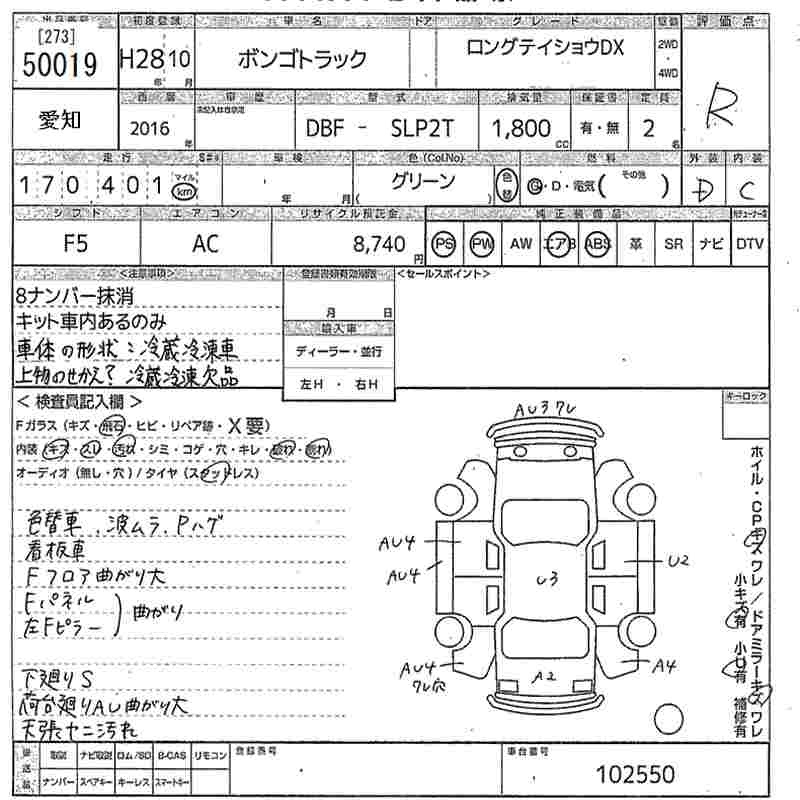 出品番号 初度登録 車名 ドア グレード 駆動 評価点
[273]
50019 H28 10 ボンゴトラック ロングテイショウDX 2WD
4WD
年 月
R
愛知
西暦 車歴 型式 排気量 保証書 定員
2016 年 DBF - SLP2T 1,800 CC 有・無 2 名
走行 S#* 車検 色(Col.No) 燃料 外装 内装
170401 マイル km 年 月 グリーン ( ) 色替 G・D・電気( その他 ) D C
シフト エアコン リサイクル預託金 純正装備品
F5 AC 8,740 円 PS PW AW エアB ABS 革 SR ナビ DTV
<注意事項> 登録書類有効期限 <セールスポイント>
8ナンバー抹消
月 日
キット車内あるのみ
輸入車
車体の形状:冷蔵冷凍車
ディーラー・並行
上物のせかえ?冷蔵冷凍欠品
左H ・ 右H
<検査員記入欄>
キーロック
Fガラス(キズ・飛石・ヒビ・リペア跡・X要)
内装(キズ・スレ・汚れ・シミ・コゲ・穴・キレ・
オーディオ(無し・穴)/タイヤ(スタッドレス)
色替車、波ムラ、Pハゲ
看板車
Fフロア曲がり大
Fパネル
左Fピラー
曲がり
下廻りS
荷台廻りAU曲がり大
天張ヤニ汚れ
AU3ワレ
AU4
AU4
U3
U2
AU4
ワレ穴
A2
A4
ホイル・CPキズワレ/ドアミラーキズワレ
小キズ有 小U有 補修有
後送品 取説 ナビ取説 ロム/SD B-CAS リモコン 登録番号 車台番号
ナンバー スペアキー キーレス スマートキー
102550